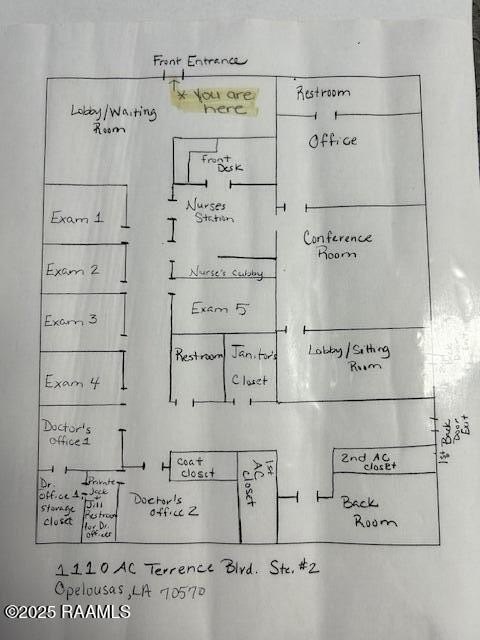 Front Entrance
* You are
here
Lobby/Waiting
Room
Restroom
Office
Front
Desk
Nurses
Station
Exam 1
Conference
Room
Exam 2
Nurse's Cubby
Exam 3
Exam 5
Restroom
Janitor's
Closet
Lobby/Sitting
Room
Exam 4
1st Back
Door
Exit
Doctor's
Office 1
Coat
closet
1st
AC
closet
2nd AC
closet
Dr.
Office 1
Storage
closet
Private
Jack
+
Jill
Restroom
for Dr.
offices
Doctor's
Office 2
Back
Room
1110 AC Terrence Blvd. Ste. #2
Opelousas, LA 70570
©2025 RAAMLS